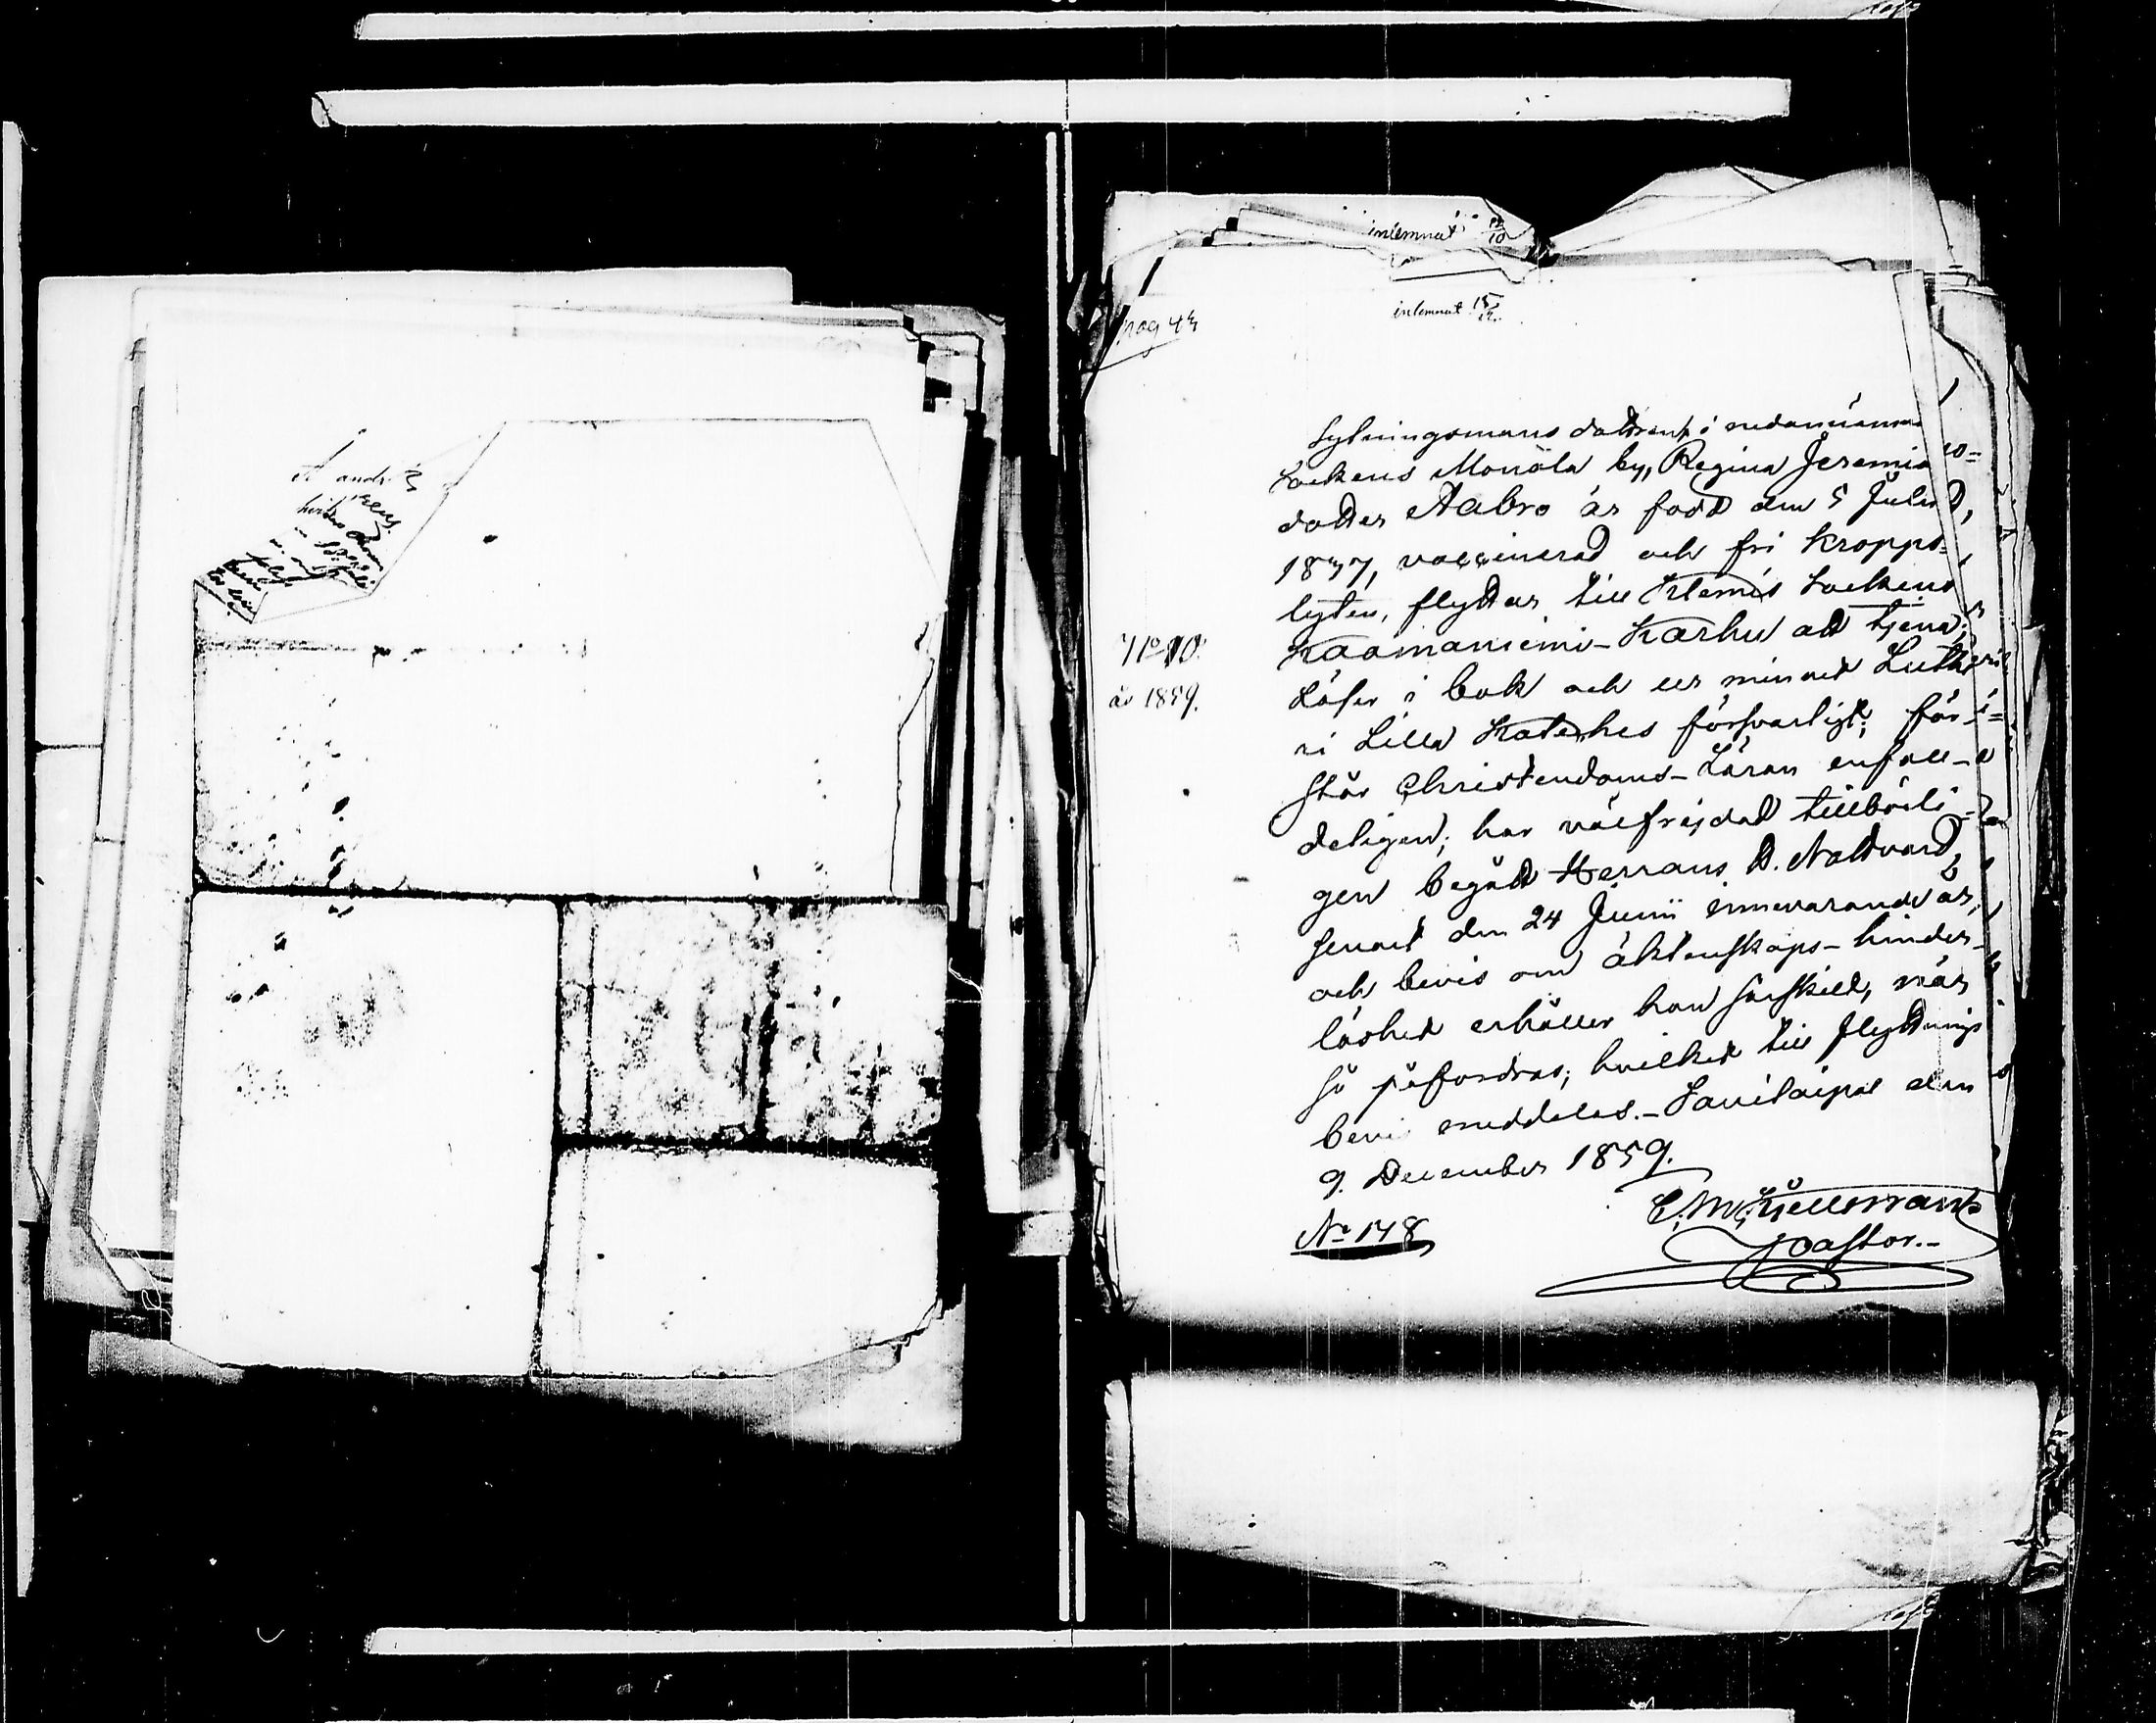 inlemnat 12/10
inlemnat 15/12
pag 43
Sytningsmans dottren i nedannämnde
Sockens Monola by, Regina Jeremia
dotter Aabro är född den 5 Julii
1837, vaccinerad och fri kropps-
lyten, flyttar till Klemis Sockens
Kaamaniemi-Karhu att tjena;
No 10.
år 1859.
Läser i bok och ur minnet Luthe
ri Lilla Kateches försvarligt; för
står Christendoms-Läran enfall-
deligen; har välfrejdad tillbörli-
gen begått Herrans H. Nattvard,
senast den 24 Junii innevarande år,
och bevis om äktenskaps-hinder-
löshet erhåller hon särskildt, när
så påfordras; hvilket till flyttnings
bevis meddelas.- Savitaipal den
9. December 1859.
No 148
Pastor.-